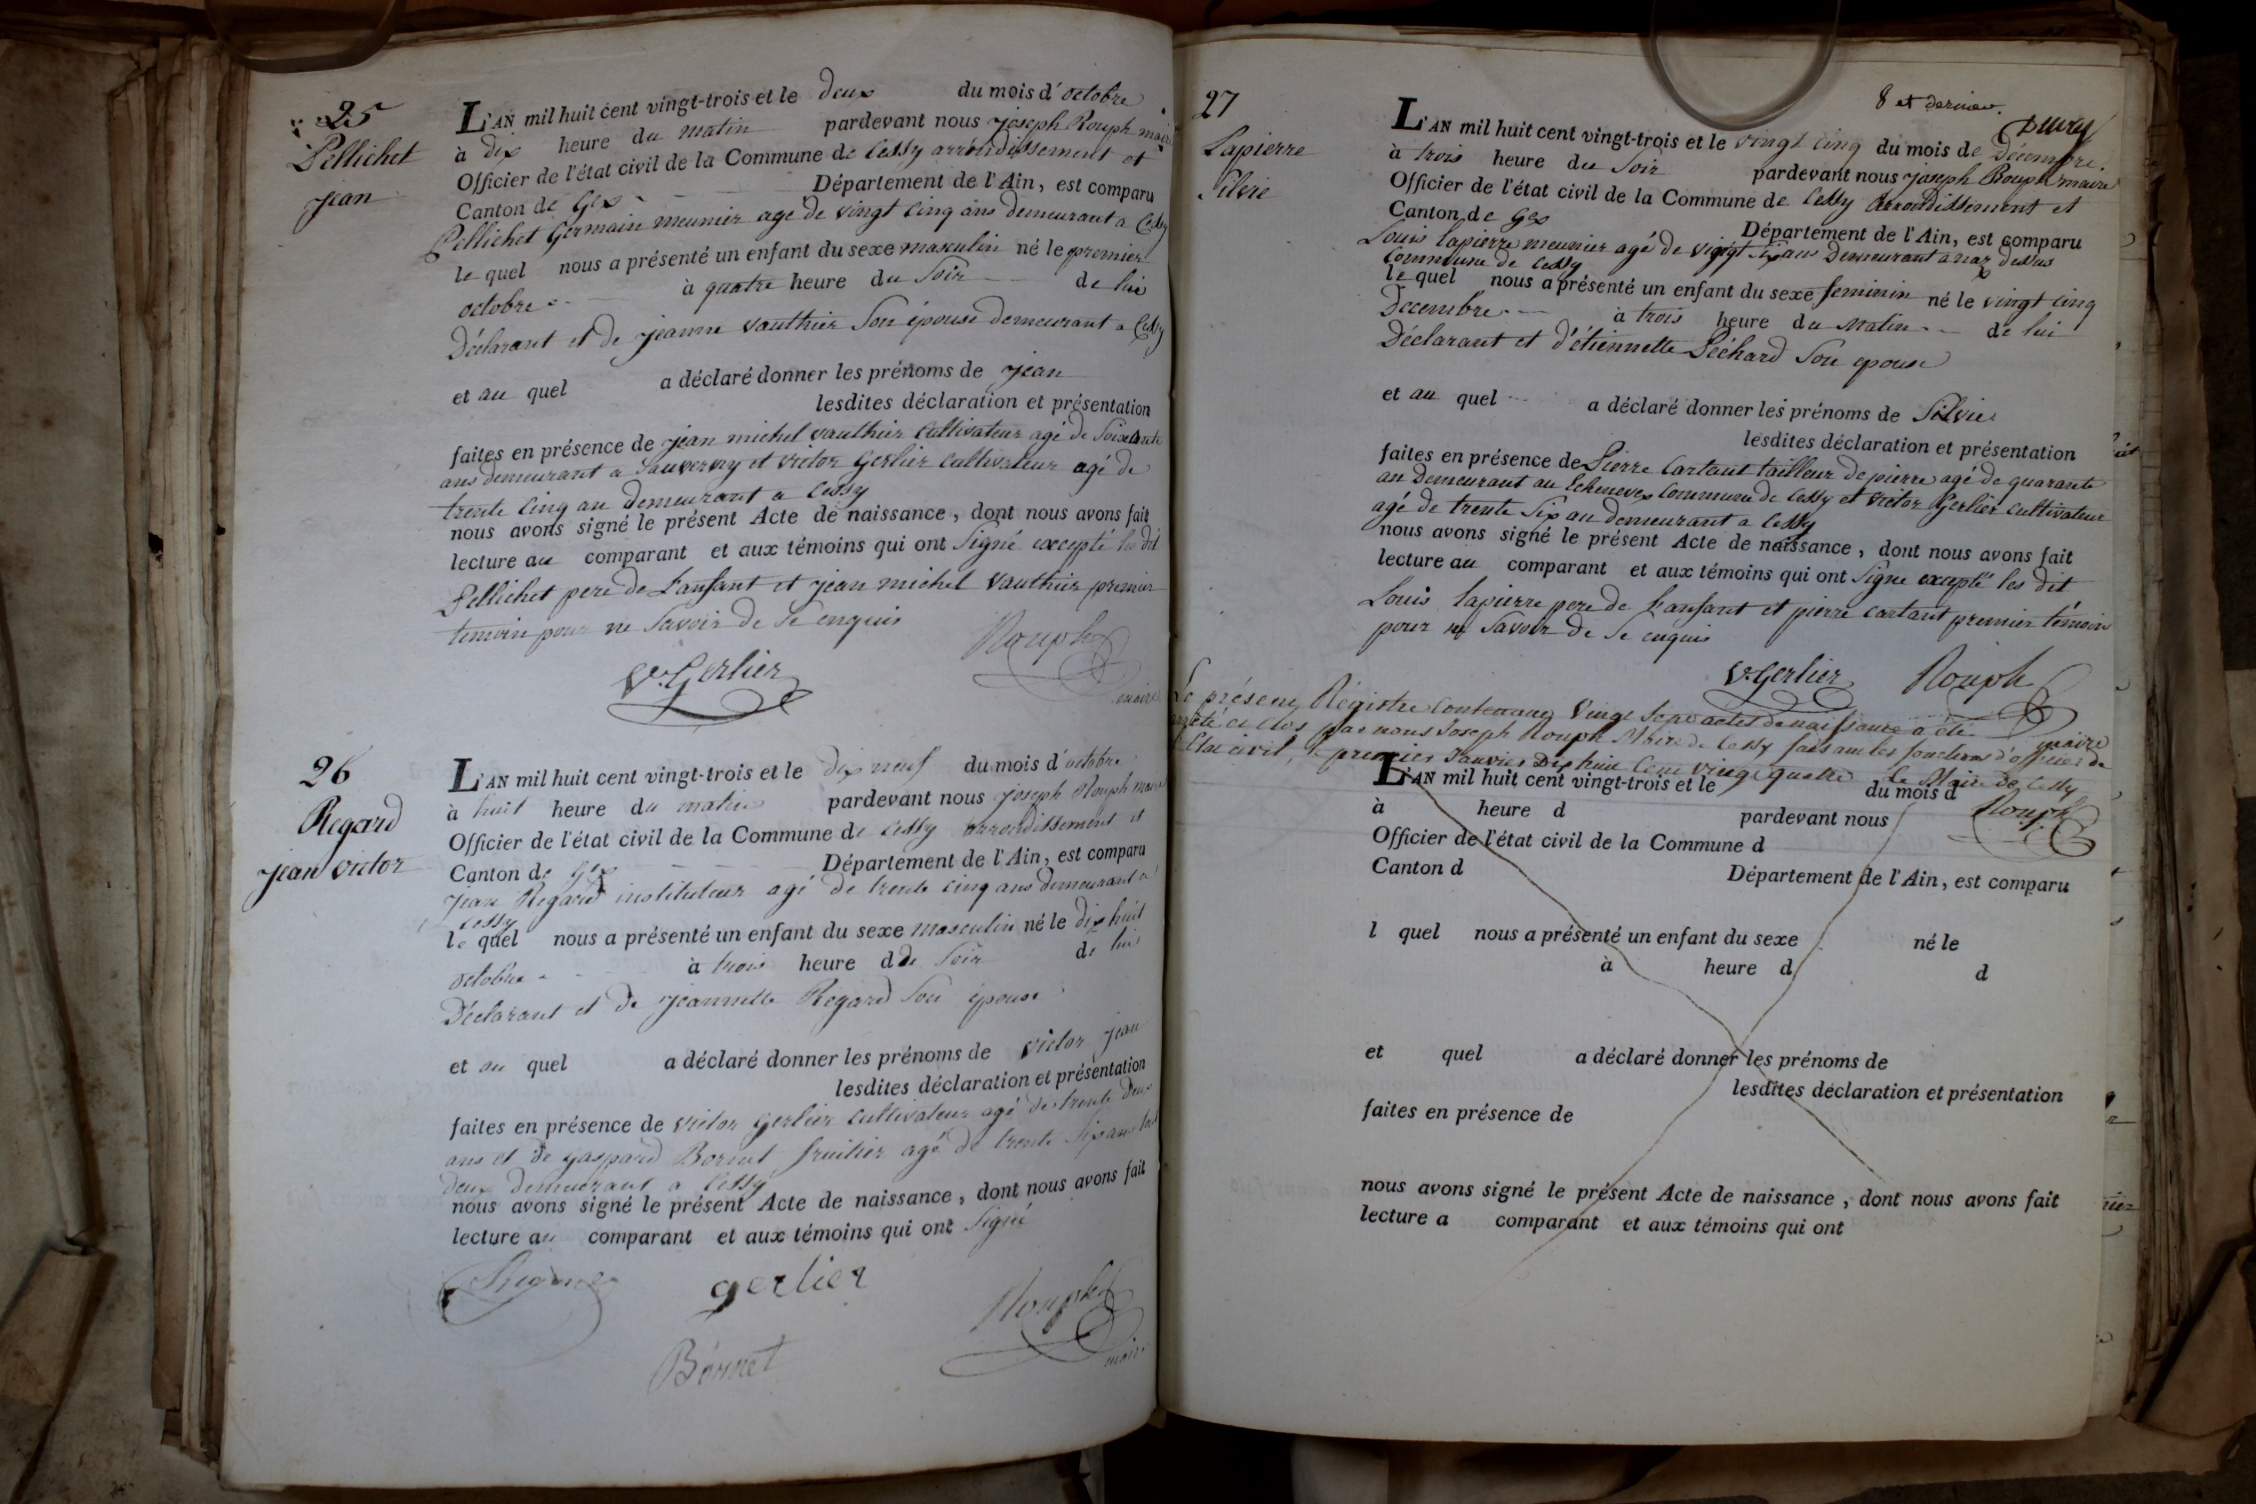 25
Pellichet
jean
L'AN mil huit cent vingt-trois et le deux du mois d'octobre
à dix heure du matin pardevant nous joseph Rouph maire
Officier de l'état civil de la Commune de Cessy arrondissement et
Canton de Gex Département de l'Ain, est comparu
Pellichet Germain meunier age de vingt cinq ans demeurant a Cessy
le quel nous a présenté un enfant du sexe masculin né le premier
octobre à quatre heure du Soir de lui
Déclarant et de jeanne vauthier Son épouse demeurant a Cessy
et au quel a déclaré donner les prénoms de jean
lesdites déclaration et présentation
faites en présence de jean michel vauthier Cultivateur agé de Soixante
ans demeurant a Sauverny et victor Gerlier Cultivateur agé de
trente Cinq an demeurant a Cessy
nous avons signé le présent Acte de naissance, dont nous avons fait
lecture au comparant et aux témoins qui ont Signé excepté les dit
Pellichet pere de L'anfant et jean michel Vauthier premier
temoin pour ne Savoir de Se enquis
V. Gerlier Rouph
maire
26
Regard
jean victor
L'AN mil huit cent vingt-trois et le dix neuf du mois d'octobre
à huit heure du matin pardevant nous joseph Rouph maire
Officier de l'état civil de la Commune de Cessy arrondissement et
Canton de Gex Département de l'Ain, est comparu
jean Regard instituteur agé de trente cinq ans demeurant a
Cessy
le quel nous a présenté un enfant du sexe masculin né le dix huit
octobre à trois heure d de Soir de lui
Déclarant et de jeannette Regard Son épouse
et au quel a déclaré donner les prénoms de victor jean
lesdites déclaration et présentation
faites en présence de victor gerlier Cultivateur agé de trente Deux
ans et de Gaspard Bornet fruitier agé de trente Six ans tout
deux demeurant a Cessy
nous avons signé le présent Acte de naissance, dont nous avons fait
lecture au comparant et aux témoins qui ont Signé
gerlier
Rouph
Bornet maire
8 et dernier.
27
Lapierre
Silvie
L'AN mil huit cent vingt-trois et le vingt cinq du mois de Décembre.
à trois heure du Soir pardevant nous joseph Rouph maire
Officier de l'état civil de la Commune de Cessy Arrondissement et
Canton de Gex Département de l'Ain, est comparu
Louis lapierre meunier agé de vingt Six ans Demeurant a naz dessus
Commune de Cessy
le quel nous a présenté un enfant du sexe feminin né le vingt cinq
Decembre à trois heure du Matin de lui
Déclarant et d'étiennette Péchard Son epouse
et au quel a déclaré donner les prénoms de Silvie
lesdites déclaration et présentation
faites en présence de Pierre Cartant tailleur de pierre agé de quarante
an Demeurant au Echenevex Commune de Cessy et victor Gerlier Cultivateur
agé de trente Six an demeurant a Cessy
nous avons signé le présent Acte de naissance, dont nous avons fait
lecture au comparant et aux témoins qui ont Signe excepté les dit
Louis lapierre pere de L'anfant et pierre cartant premier témoin
pour ne Savoir de Se enquis
V. Gerlier Rouph
maire
Le présent Régistre Contenant Vingt Sept actes de naissance a été
arrêté et Clos par nous Joseph Rouph Maire de Cessy faisant les fonctions d'officier de
l'Etat civil, le premier Janvier Dix huit Cent vingt quatre Le Maire de Cessy
Rouph
L'AN mil huit cent vingt-trois et le du mois d
à heure d pardevant nous
Officier de l'état civil de la Commune d
Canton d Département de l'Ain, est comparu
l quel nous a présenté un enfant du sexe né le
à heure d d
et quel a déclaré donner les prénoms de
lesdites déclaration et présentation
faites en présence de
nous avons signé le présent Acte de naissance, dont nous avons fait
lecture a comparant et aux témoins qui ont